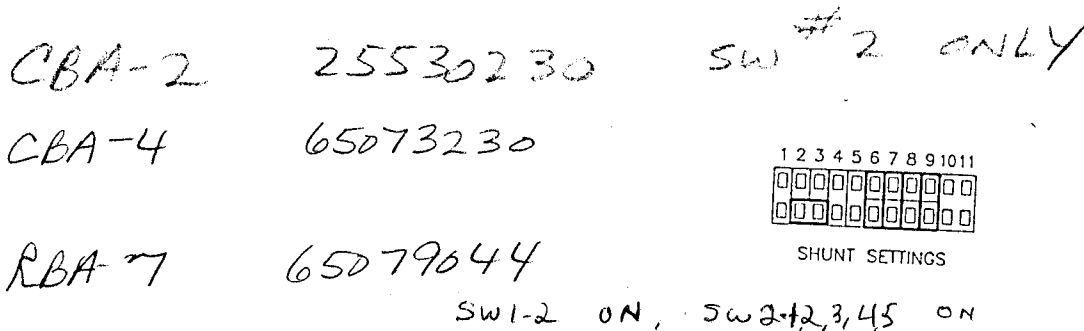 CBA-2 25530230 SW #2 ONLY
CBA-4 65073230
1 2 3 4 5 6 7 8 9 10 11
SHUNT SETTINGS
RBA-7 65079044
SW1-2 ON, SW2-1,2,3,4,5 ON